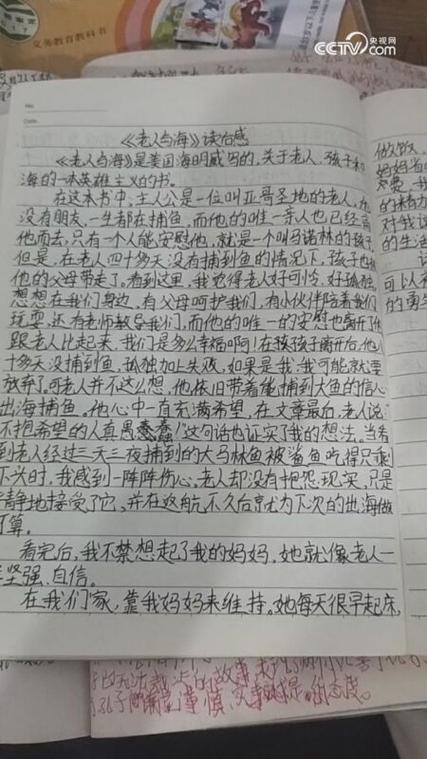 义务教育教科书
CCTV.com 央视网
No.
Date.
《老人与海》读后感
《老人与海》是美国海明威写的,关于老人、孩子和
海的一本英雄主义的书。
在这本书中,主人公是一位叫亚哥圣地的老人,他
没有朋友,一生都在捕鱼,而他的唯一亲人也已经离
他而去,只有一个人能安慰他,就是一个叫马诺林的孩子
但是,在老人四十多天没有捕到鱼的情况下,孩子也被
他的父母带走了。看到这里,我觉得老人好可怜,好孤独,
想想在我们身边,有父母呵护我们,有小伙伴陪着我们
玩耍,还有老师教导我们,而他的唯一的安慰也离开了他
跟老人比起来,我们是多么幸福啊!在孩孩子离开后,他八
十多天没捕到鱼,孤独加上失败,如果是我,我可能就要
放弃了,可老人并不这么想,他依旧带着能捕到大鱼的信心
出海捕鱼。他心中一直充满希望,在文章最后,老人说:
不抱希望的人真愚蠢!这句话也证实了我的想法。当看
到老人经过三天三夜捕到的大马林鱼被鲨鱼吃得只剩
下头时,我感到一阵阵伤心,老人却没有抱怨现实,只是
静地接受了它,并在返航不久后就为下次的出海做
打算。
看完后,我不禁想起了我的妈妈,她就像老人一
坚强、自信。
在我们家,靠我妈妈来维持。她每天很早起床,
做饭、
妈妈
的精力
对我
的生活
可以
的勇